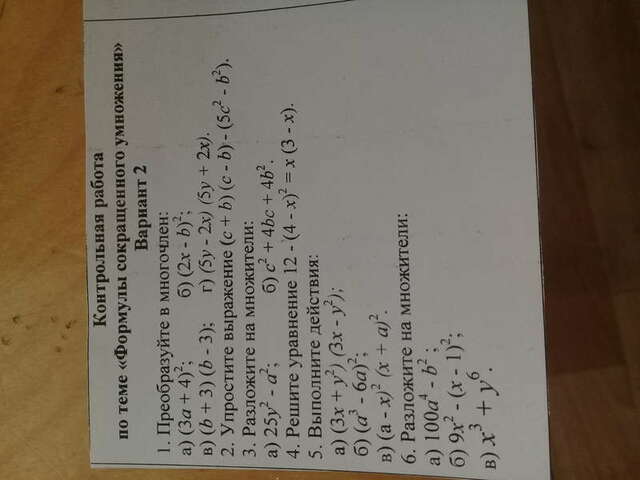 Контрольная работа
по теме «Формулы сокращенного умножения»
Вариант 2
1. Преобразуйте в многочлен:
а) (3a + 4)²; б) (2x - b)²;
в) (b + 3) (b - 3); г) (5y - 2x) (5y + 2x).
2. Упростите выражение (c + b) (c - b) - (5c² - b²).
3. Разложите на множители:
а) 25y² - a²; б) c² + 4bc + 4b².
4. Решите уравнение 12 - (4 - x)² = x (3 - x).
5. Выполните действия:
а) (3x + y²) (3x - y²);
б) (a³ - 6a)²;
в) (a - x)² (x + a)².
6. Разложите на множители:
а) 100a⁴ - b²;
б) 9x² - (x - 1)²;
в) x³ + y⁶.